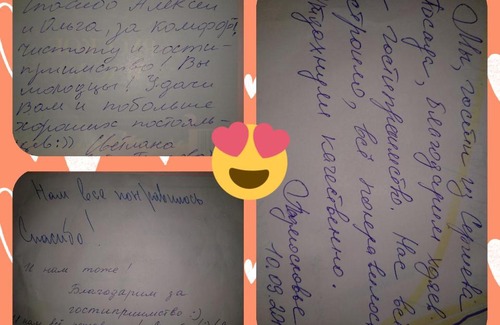 Спасибо Алексей
и Ольга, за комфорт,
чистоту и гости-
приимство! Вы
молодцы! Удачи
Вам и побольше
хороших постояль-
цев:)) Светлана
Нам все понравилось
Спасибо!
И нам тоже!
Благодарим за
гостиприимство :)
Мы, гости из Сергиева
Посада, благодарим хозяев
гостеприимство. Нас всё
строило, всё понравилось
Отдохнули качественно.
Подмосковье
10.09.20